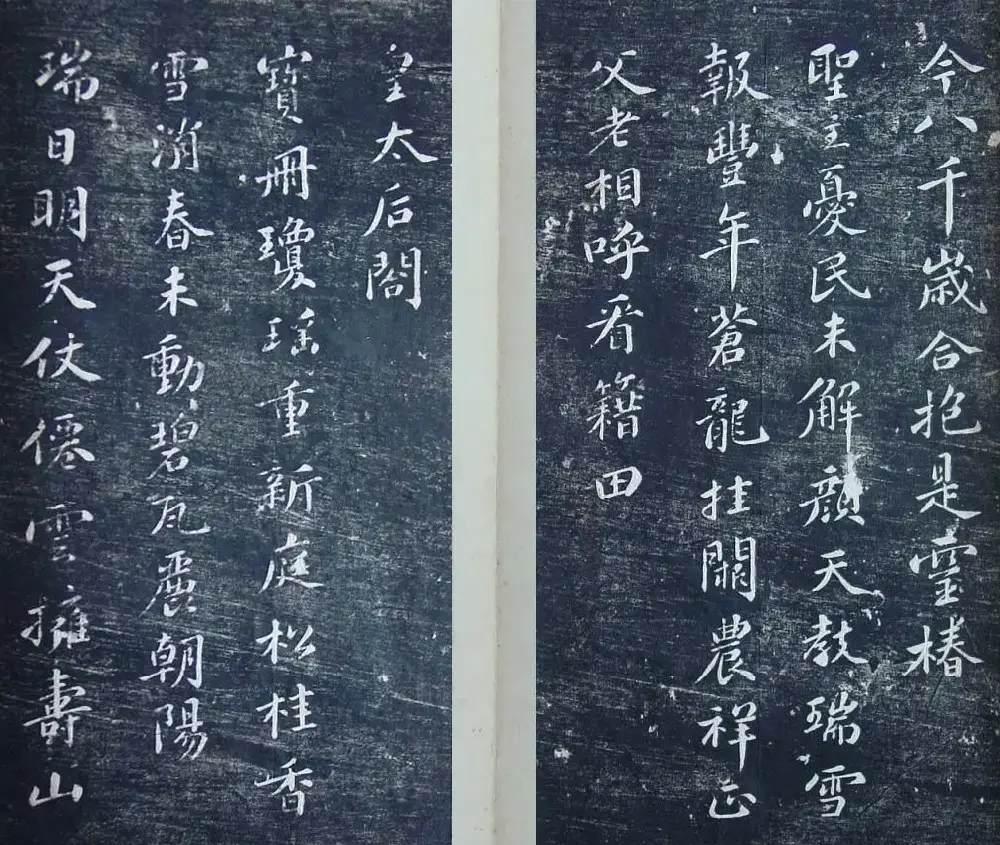 今八千歲合抱是靈椿
聖主憂民未解顏天教瑞雪
報豐年蒼龍挂闕農祥正
父老相呼看籍田
皇太后閤
寶冊瓊瑤重新庭松桂香
雪消春未動碧瓦麗朝陽
瑞日明天仗僊雲擁壽山